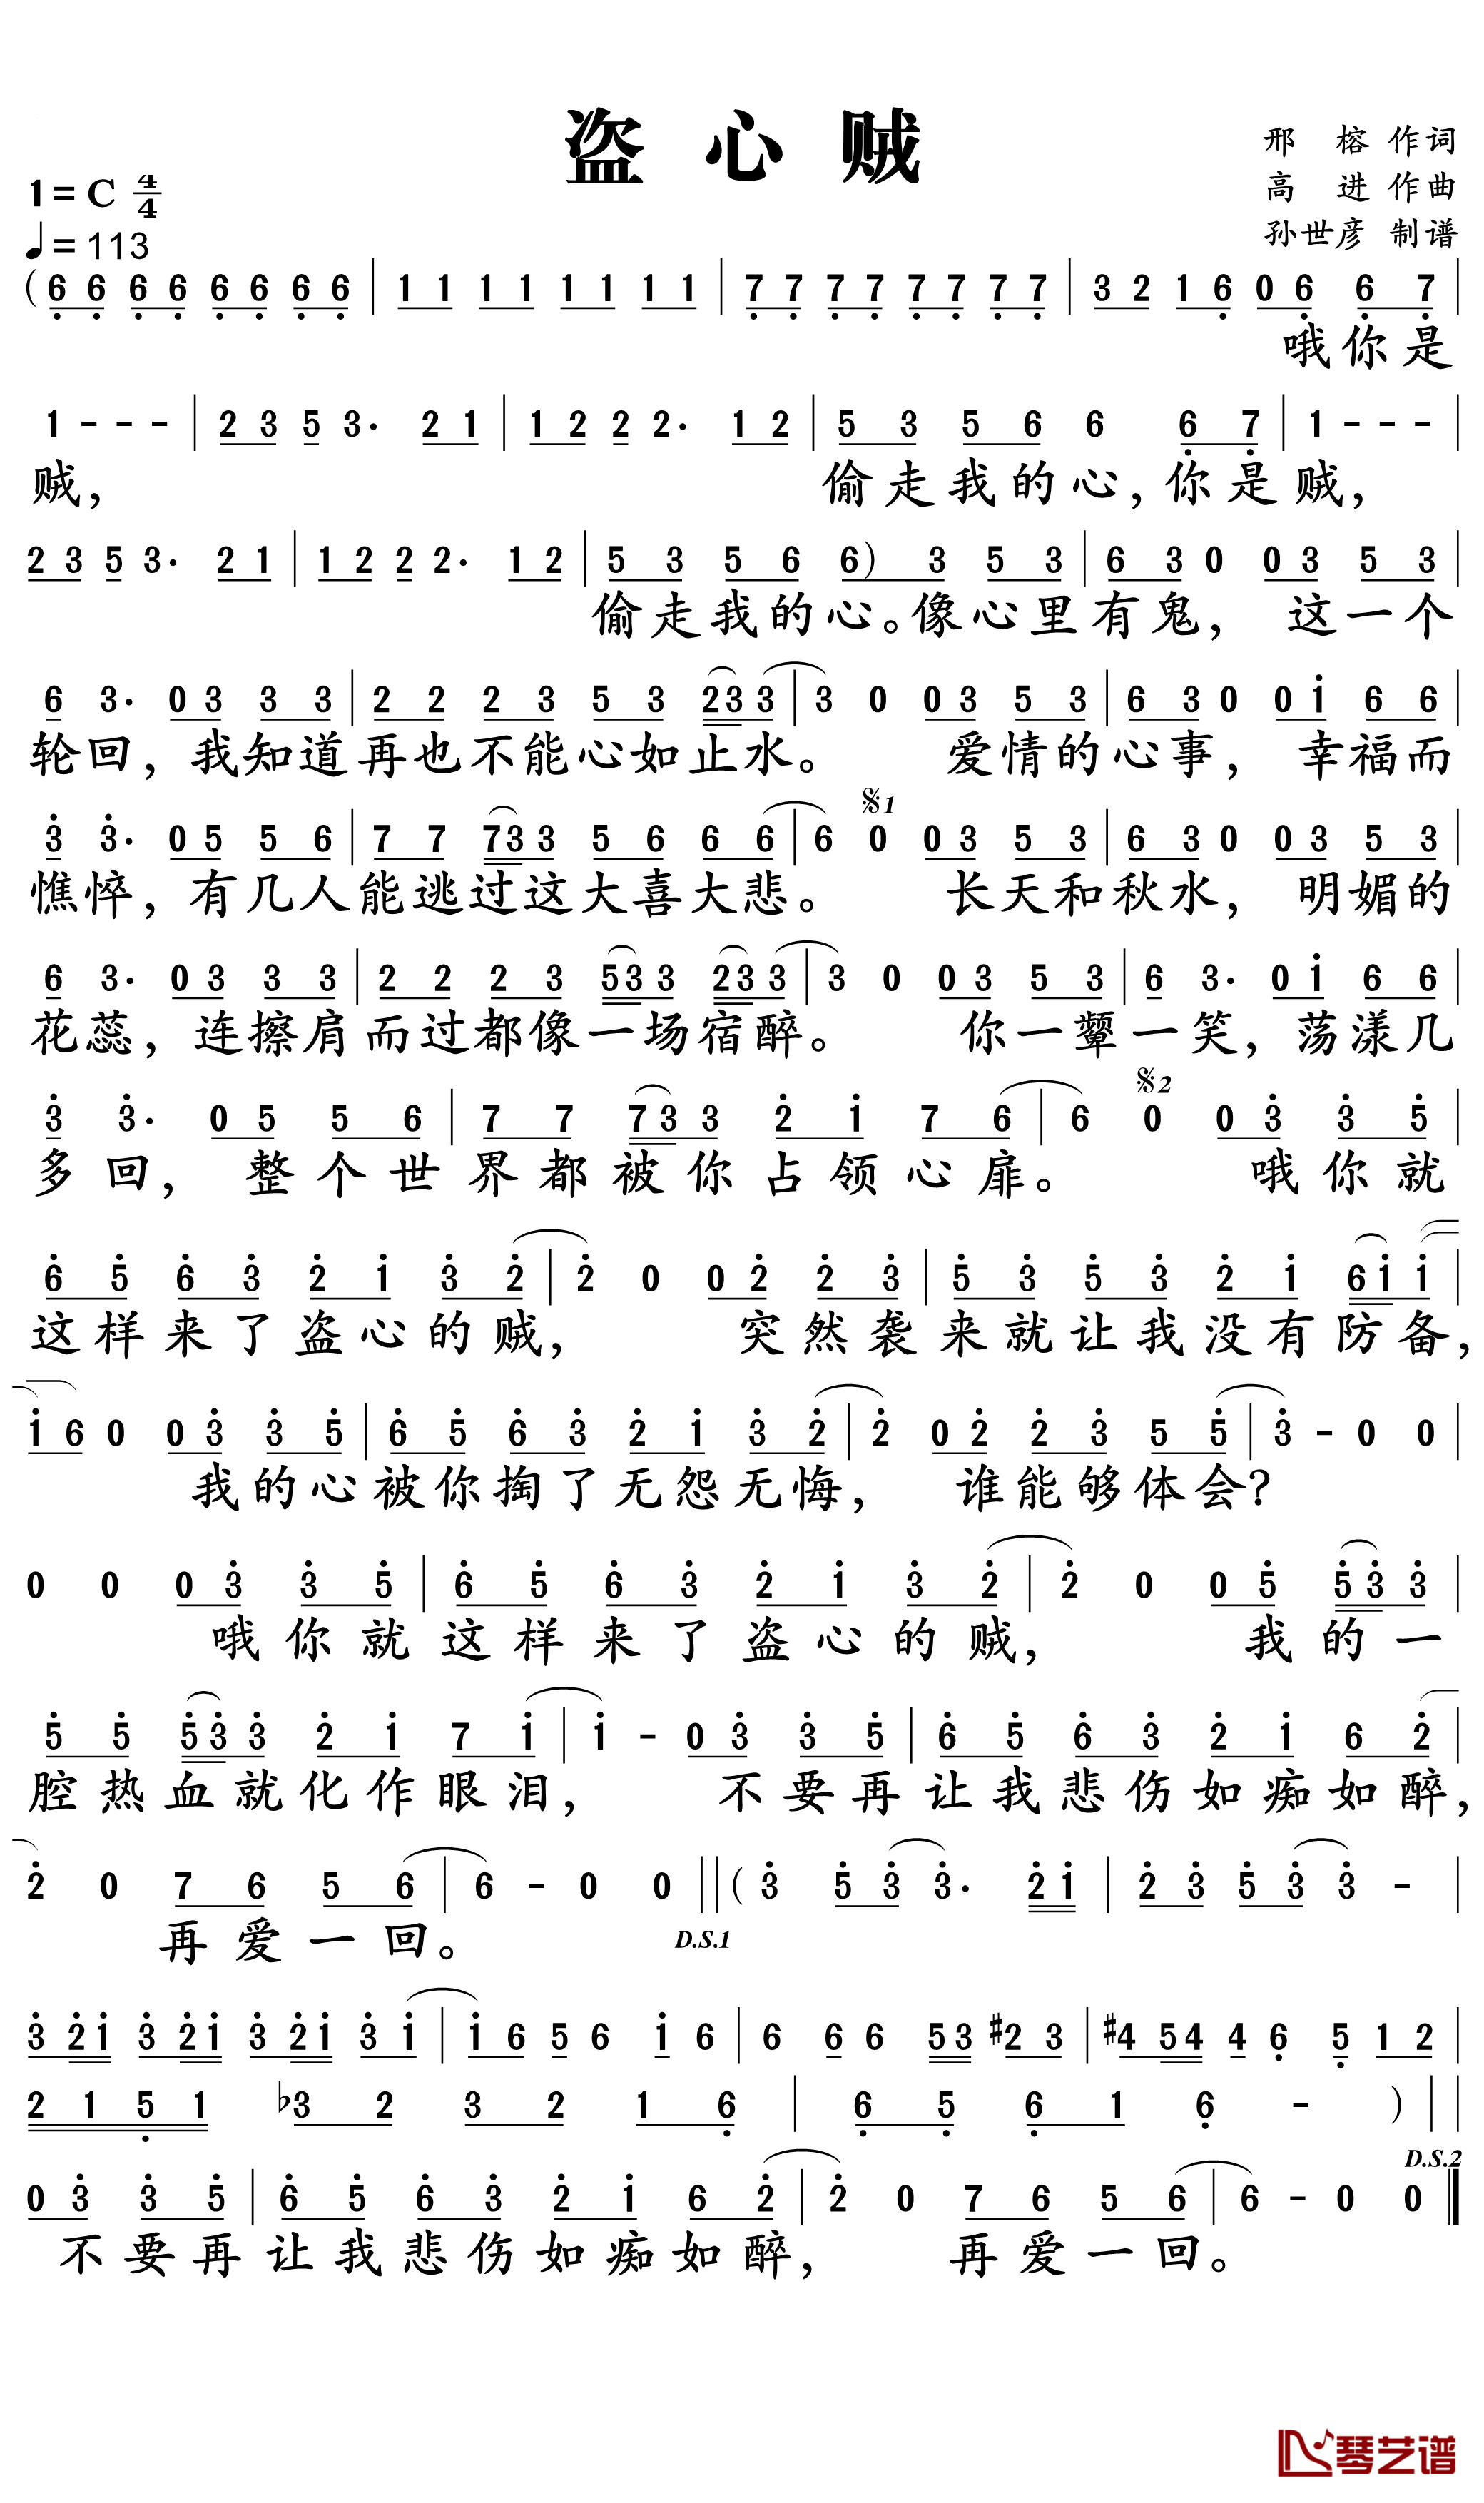 盗心贼
邢 榕 作词
高 进 作曲
孙世彦 制谱
1=C 4/4
♩=113
(6 6 6 6 6 6 6 6 | 1 1 1 1 1 1 1 1 | 7 7 7 7 7 7 7 7 | 3 2 1 6 0 6 6 7 |
哦你是
1 - - - | 2 3 5 3· 2 1 | 1 2 2 2· 1 2 | 5 3 5 6 6 6 7 | 1 - - - |
贼, 偷走我的心,你是贼,
2 3 5 3· 2 1 | 1 2 2 2· 1 2 | 5 3 5 6 6) 3 5 3 | 6 3 0 0 3 5 3 |
偷走我的心。像心里有鬼, 这一个
6 3· 0 3 3 3 | 2 2 2 3 5 3 2 3 3 | 3 0 0 3 5 3 | 6 3 0 0 1 6 6 |
轮回,我知道再也不能心如止水。 爱情的心事, 幸福而
𝄋1
3 3· 0 5 5 6 | 7 7 7 3 3 5 6 6 6 | 6 0 0 3 5 3 | 6 3 0 0 3 5 3 |
憔悴,有几人能逃过这大喜大悲。 长天和秋水, 明媚的
6 3· 0 3 3 3 | 2 2 2 3 5 3 3 2 3 3 | 3 0 0 3 5 3 | 6 3· 0 1 6 6 |
花蕊,连擦肩而过都像一场宿醉。 你一颦一笑,荡漾几
𝄋2
3 3· 0 5 5 6 | 7 7 7 3 3 2 1 7 6 | 6 0 0 3 3 5 |
多回, 整个世界都被你占领心扉。 哦你就
6 5 6 3 2 1 3 2 | 2 0 0 2 2 3 | 5 3 5 3 2 1 6 1 1 |
这样来了盗心的贼, 突然袭来就让我没有防备,
1 6 0 0 3 3 5 | 6 5 6 3 2 1 3 2 | 2 0 2 2 3 5 5 | 3 - 0 0 |
我的心被你掏了无怨无悔, 谁能够体会?
0 0 0 3 3 5 | 6 5 6 3 2 1 3 2 | 2 0 0 5 5 3 3 |
哦你就这样来了盗心的贼, 我的一
5 5 5 3 3 2 1 7 1 | 1 - 0 3 3 5 | 6 5 6 3 2 1 6 2 |
腔热血就化作眼泪, 不要再让我悲伤如痴如醉,
2 0 7 6 5 6 | 6 - 0 0 || (3 5 3 3· 2 1 | 2 3 5 3 3 - |
再爱一回。 D.S.1
3 2 1 3 2 1 3 2 1 3 1 | 1 6 5 6 1 6 | 6 6 6 5 3 #2 3 | #4 5 4 4 6 5 1 2 |
2 1 5 1 ♭3 2 3 2 1 6 | 6 5 6 1 6 - ) ||
D.S.2
0 3 3 5 | 6 5 6 3 2 1 6 2 | 2 0 7 6 5 6 | 6 - 0 0 ||
不要再让我悲伤如痴如醉, 再爱一回。
琴艺谱